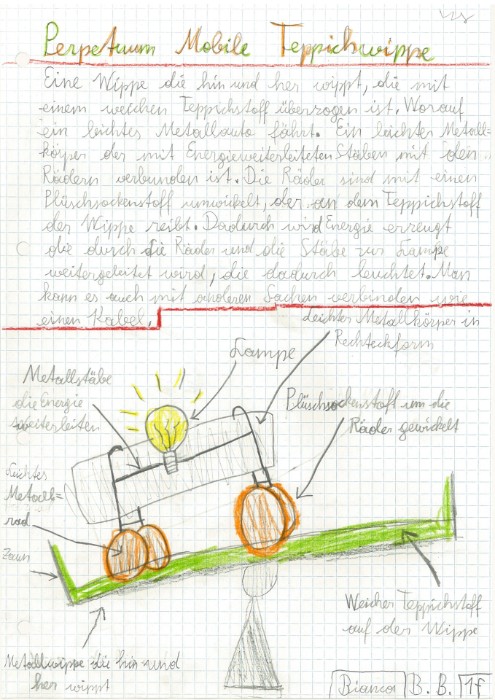 Perpetuum Mobile Teppichwippe
Eine Wippe die hin und her wippt, die mit
einem weichen Teppichstoff überzogen ist. Worauf
ein leichtes Metallauto fährt. Ein leichter Metall=
körper der mit Energieweiterleiteten Stäben mit den
Rädern verbunden ist. Die Räder sind mit einen
Plüschsockenstoff umwickelt, der an dem Teppichstoff
der Wippe reibt. Dadurch wird Energie erzeugt
die durch die Räder und die Stäbe zur Lampe
weitergeleitet wird, die dadurch leuchtet. Man
kann es auch mit anderen Sachen verbinden wie
einen Kabel.
Leichter Metallkörper in
Rechteckform
Lampe
Metallstäbe
die Energie
weiterleiten
Blüschsockenstoff um die
Räder gewickelt
Leichtes
Metall=
rad
Zaun
Weicher Teppichstoff
auf der Wippe
Metallwippe die hin und
her wippt
Bianca B. B. 1f